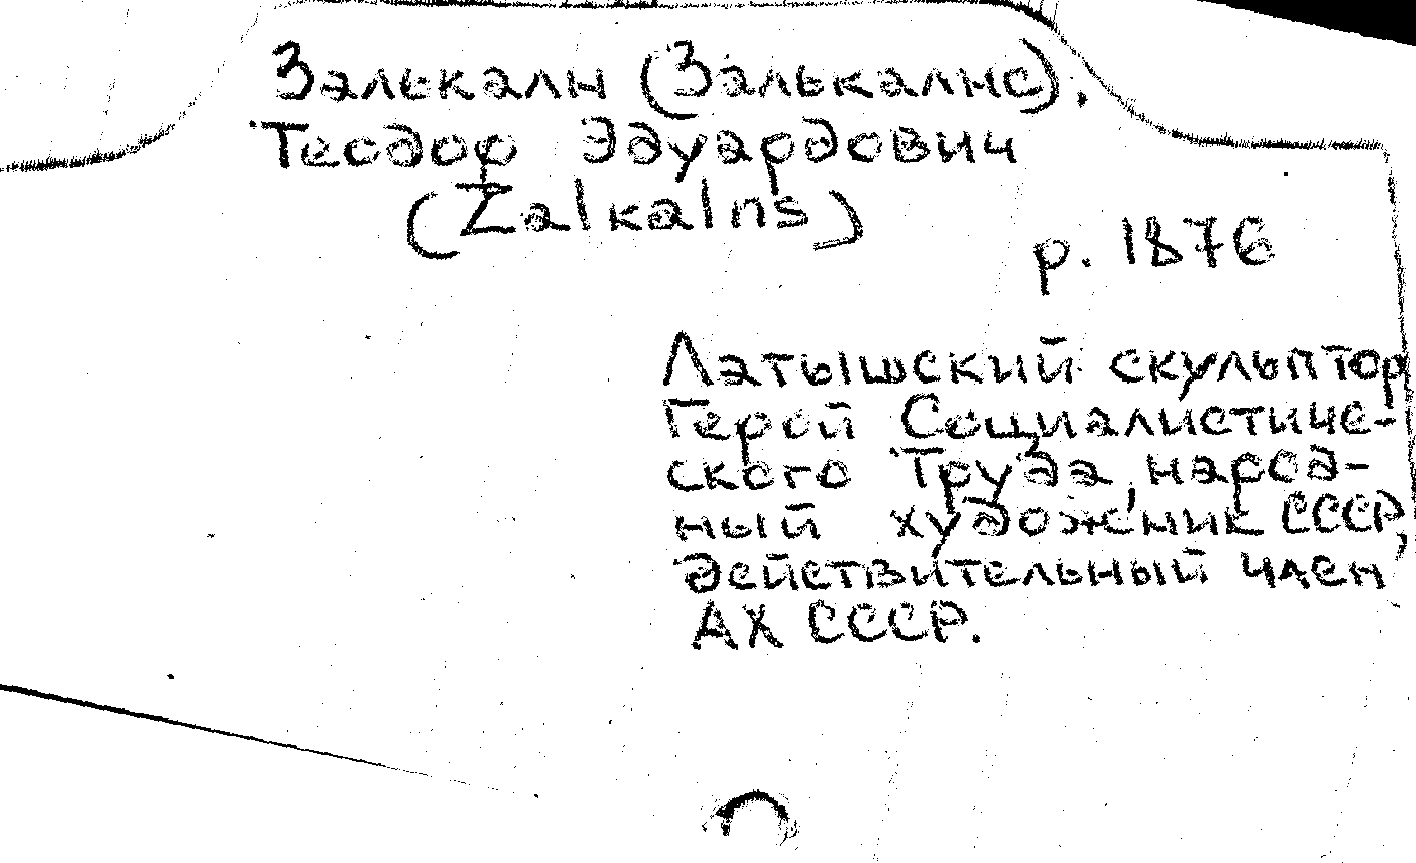 Залькалн (Залькалнс).
Теодор Эдуардович
(Zalkalns)
р. 1876
Латышский скульптор
Герой Социалистиче-
ского Труда, народ-
ный художник СССР,
действительный член
АХ СССР.